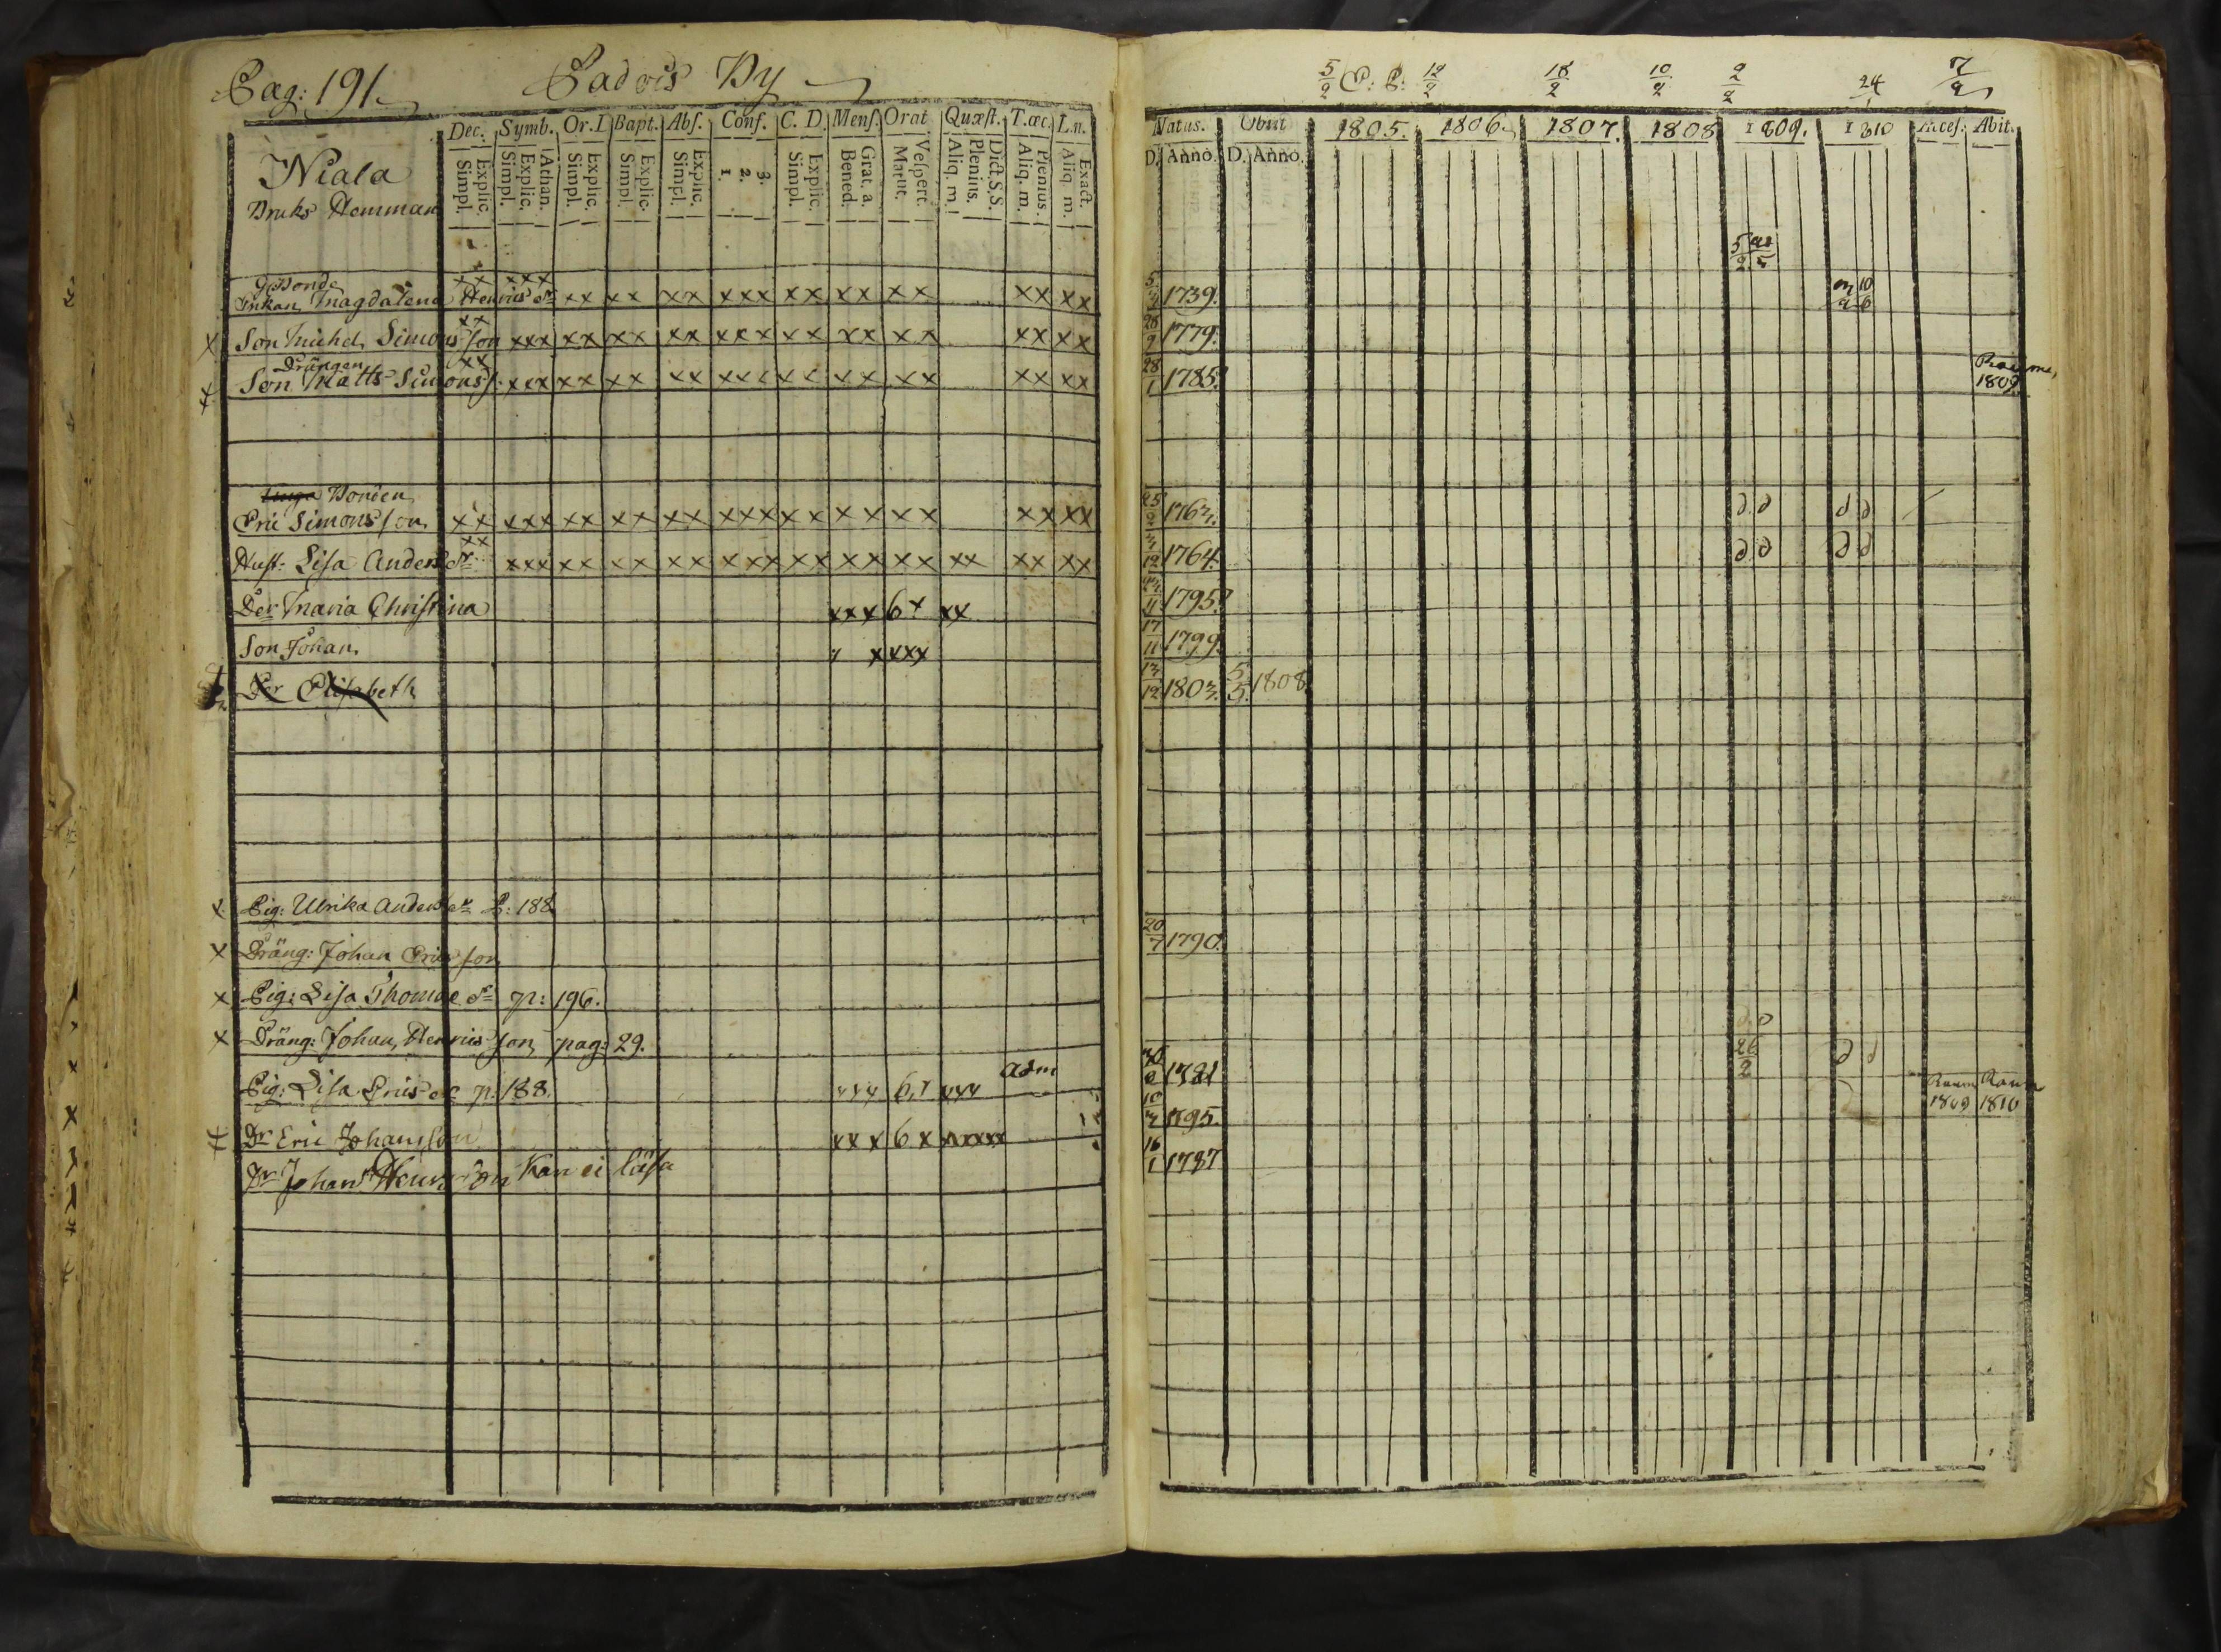 Pag: 191. Padois By
Niala
Bruks Hemman
Dec. Symb. Or. D Bapt. Abs. Conf. C. D. Mens. Orat. Quæst. T. œc. L. n.
Explic. Simpl. Athan. Explic. Simpl. Explic. Simpl. Explic. Simpl. Explic. Simpl. 3. 2. 1. Explic. Simpl. Grat. a. Bened. Vespert. Matut. Dict. S.S. Plenius. Aliq. m. Plenius. Aliq. m. Exact. Aliq. m.
G. Bonde
Enkan Magdalena Henrics dr xx xxx xx xx xx xxx xx xx xx xx xx
Son Michel Simonsson xx xxx xx xx xx xxx xx xx xx xx xx
Drängen
Son Matts Simonss. xx xxx xx xx xx xxx xx xx xx xx xx
Bonden
Eric Simonsson xx xxx xx xx xx xxx xx xx xx xx xx
Hust: Lisa Anders dr xx xxx xx xx xx xxx xx xx xx xx xx xx
Der Maria Christina xxx 6 x xx
Son Johan x xxxx
Der Elisabeth
Pig: Ulrika Anders dr P: 188
Dräng: Johan Ericsson
Pig: Lisa Thomæ dr p: 196.
Dräng: Johan Henricsson pag: 29.
Pig: Lisa Erics dr p: 188. xxx 6,x xxx adm
Dr Eric Johansson xxx 6 x xxxxx
Dr Johan Henricson Kan ei läsa
5/2 P: P: 12/2 18/2 10/2 2/2 24/1 7/2
Natus. Obiit 1805. 1806. 1807. 1808 1809. 1810 Acces. Abit.
D. Anno. D. Anno.
1739.
28/9 1779.
28/1 1785. 1809.
25/2 1763. d.d d d
3/12 1764. d.d d d
11 1795.
17/11 1799.
13/12 1803. 5/5. 1808.
20/7 1790.
26/2 d d
1781 1809 1810
10/3 1795.
16/1 1787